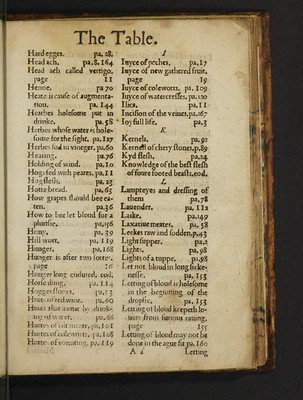 The Table.
Hard egges. pa. 28.
Head ach, pa. 8. 164
Head ach called vertigo,
page 11
Henne. pa 70
Heate is cause of augmenta-
tion. pa. 144
Hearbes holesome put in
drinke. pa. 58
Herbes whose water is hole-
some for the sight. pa, 127
Herbes sod in vineger. pa. 60
Hearing. pa. 76
Holding of wind. pa. 10
Hogs fed with peates. pa. 11
Hogs flesh. pa. 23
Hotte bread. pa. 65
Hour grapes should bee ea-
ten. pa. 36
How to bee let blood for a
plurisie, pa. 156
Hony. pa. 39
Hill wort, pa. 119
Hunger, pa. 168
Hunger is after two sortes,
page
Hunger long endured, eod,
Horse dung, pa. 114
Hogges stones, pa. 23
Hurt of red wine. pa. 60
Hurts that come by drink-
ing of water. pa. 66
Hurtes of salt meate, pa, 101
Hurtes of coleworts. pa, 108
Hurte of vomiting. pa. 119
I
Iuyce of peches. pa. 17
Iuyce of new gathered fruit.
page 19
Iuyce of coleworts. pa. 109
Iuyce of watercresses. pa. 120
Ilica. pa. 11
Incision of the veines. pa. 167
Ioy full life. pa. 3
K
Kernels. pa. 91
Kernels of chery stones, p. 89
Kyd flesh, pa. 24
Knowledge of the best flesh
of foure footed beasts, eod,
L
Lampreyes and dressing of
them pa, 78
Lauender. pa, 112
Laske, pa, 149
Laxatiue meates, pa, 58
Leekes raw and sodden, p, 43
Light supper. pa. 2
Lights. pa, 98
Lights of a tuppe. pa, 98
Let not bloud in long sicke-
nesse, pa, 153
Letting of bloud is holesome
in the beginning of the
dropsie, pa, 153
Letting of bloud keepeth lo-
uers from furious raging,
page 155
Letting of bloud may not be
done in the ague fit pa. 160
A a Letting